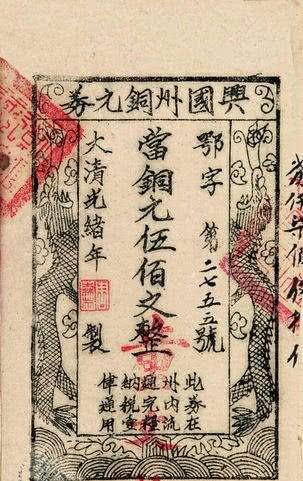 興國州銅元券
鄂字第二七五五號
當銅元伍佰之整
大清光緒年製
此券在
州內流
通完糧
納稅壹
律通用